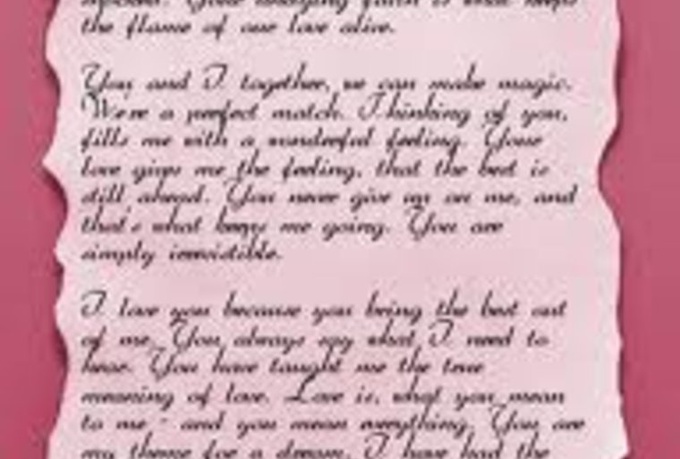 the flame of our love alive.
You and I together, we can make magic.
We're a perfect match. Thinking of you,
fills me with a wonderful feeling. Your
love gives me the feeling, that the best is
still ahead. You never give up on me, and
that's what keeps me going. You are
simply irresistible.
I love you because you bring the best out
of me. You always say what I need to
hear. You have taught me the true
meaning of love. Love is, what you mean
to me - and you mean everything. You are
my theme for a dream. I have had the